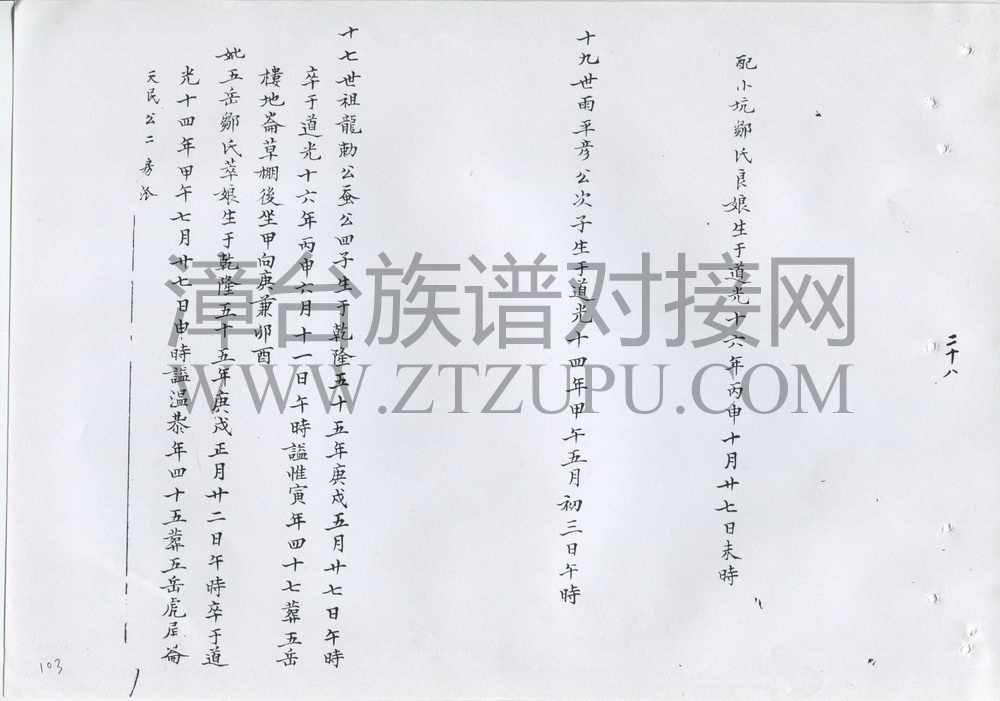 二十八
配小坑鄒氏良娘生于道光十六年丙申十月廿七日未時
十九世雨平彦公次子生于道光十四年甲午五月初三日午時
十七世祖龍勅公蚕公四子生于乾隆五十五年庚戌五月廿七日午時
卒于道光十六年丙申六月十一日午時謚惟寅年四十七葬五岳
樓地崙草棚後坐甲向庚兼卯酉
妣五岳鄒氏萃娘生于乾隆五十五年庚戌正月廿二日午時卒于道
光十四年甲午七月廿七日申時謚温恭年四十五葬五岳虎尾崙
天民公二房派
103
漳台族谱对接网
WWW.ZTZUPU.COM